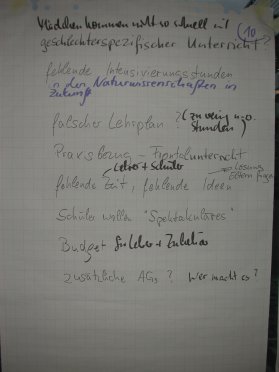 Mädchen kommen nicht so schnell mit
10
geschlechterspezifischer Unterricht
fehlende Intensivierungsstunden
in den Naturwissenschaften in
Zukunft
falscher Lehrplan? (zu wenig
Stunden)
Praxisbezug – Frontalunterricht
Lehrer + Schüler
Lösung
Eltern fragen
fehlende Zeit, fehlende Ideen
Schüler wollen "Spektakuläres"
Budget für Lehrer +
zusätzliche AGs? Wer macht es?